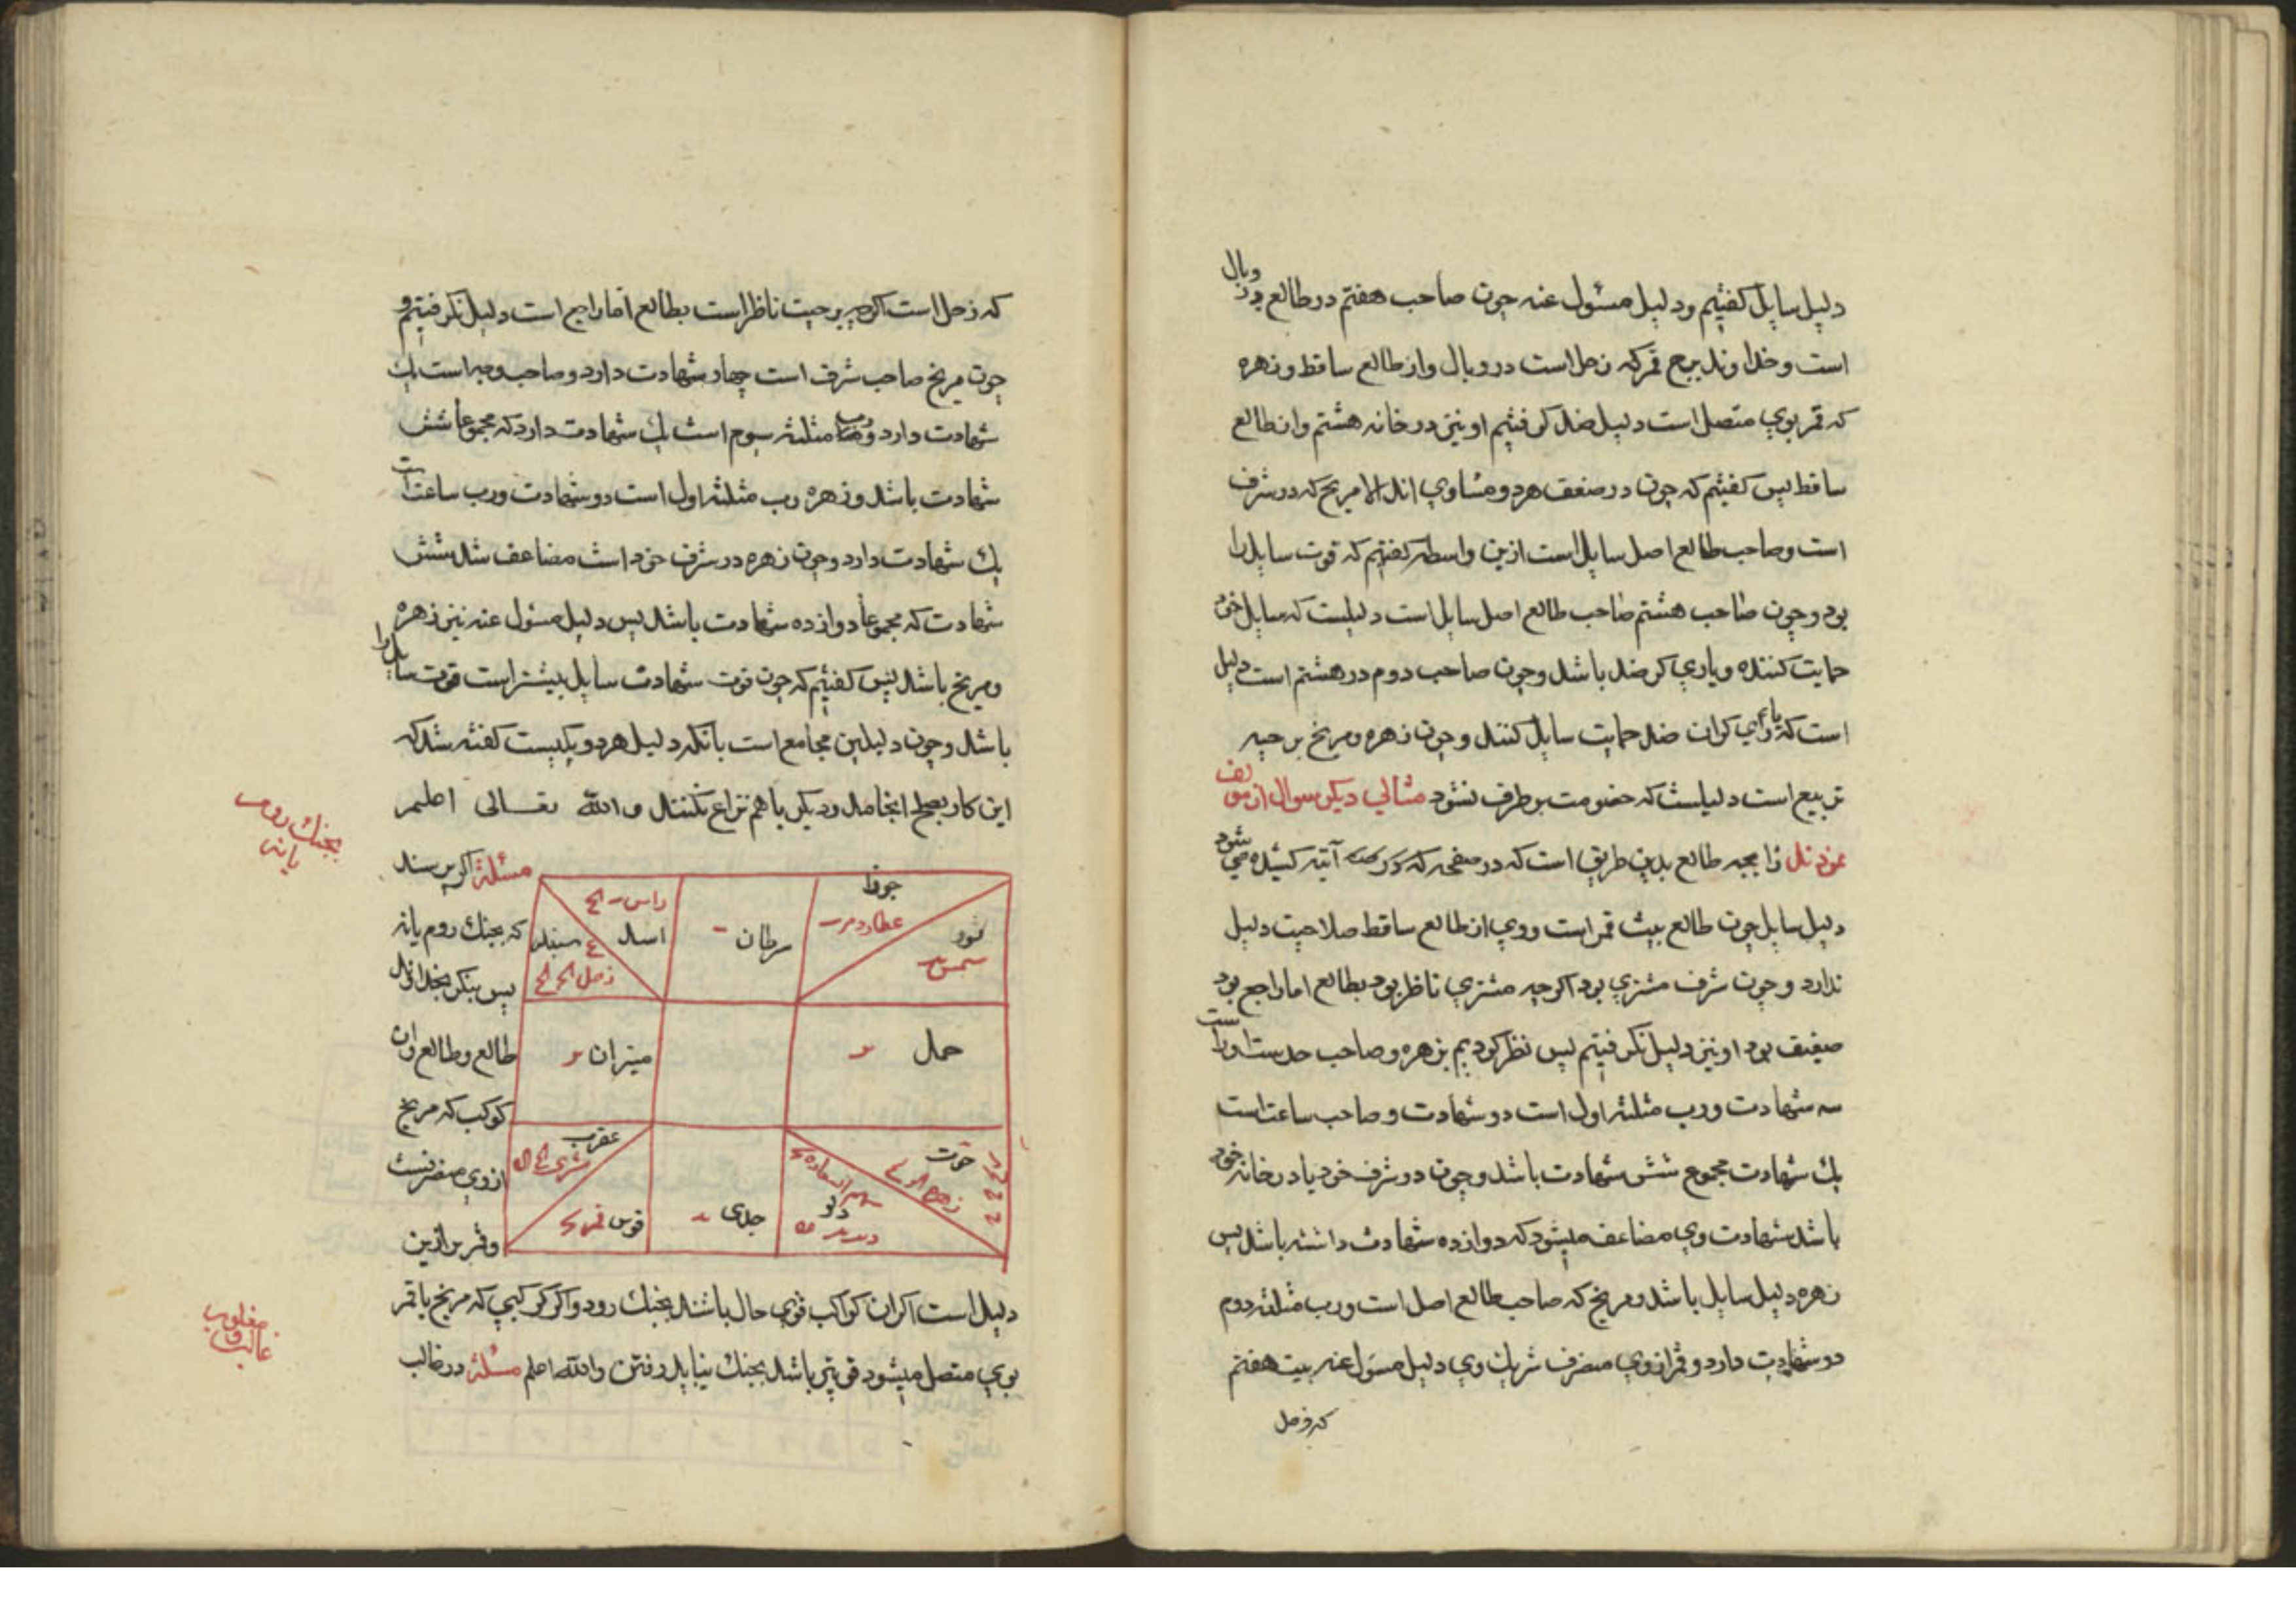 دلیل سایل کفتیم ودلیل مسئول عنه جون صاحب هفتم در طالع در وبال
است وخداوند برج قمر که زحل است در وبال واز طالع ساقط وزهره
که قمر بوی متصل است دلیل ضد کرفتیم او نیز در خانه هشتم واز طالع
ساقط پس کفتیم که جون در ضعف هر دو مساوی اند الا مریخ که در شرف
است وصاحب طالع اصل سایل است ازین واسطه کفتیم که قوت سایل را
بود وجون صاحب هشتم صاحب طالع اصل سایل است دلیلست که سایل خود
حمایت کننده ویاری کر ضد باشد وجون صاحب دوم در هشتم است دلیل
است که یاری کران ضد حمایت سایل کنند وجون زهره ومریخ بر جیه
تربیع است دلیلست که خصومت بر طرف نشود مثالی دیکر سوال از مولف
نمودند زایجه طالع بدین طریق است که در صفحه که آتیه کشیده می شود
دلیل سایل جون طالع بیت قمر است ووی از طالع ساقط صلاحیت دلیل
ندارد وجون شرف مشتری بود اکرجه مشتری ناظر بود بطالع اما راجع بود
ضعیف بود او نیز دلیل نکرفتیم پس نظر کردیم بزهره وصاحب حدست اورا ست
سه شهادت ورب مثلثه اول است دو شهادت وصاحب ساعتست
یك شهادت مجموع شش شهادت باشد وجون در شرف خود یا در خانه خود
باشد شهادت وی مضاعف میشود که دوازده شهادت داشته باشد پس
زهره دلیل سایل باشد ومریخ که صاحب طالع اصل است ورب مثلثه دوم
دو شهادت دارد وقمر از وی منصرف شریك وی دلیل مسئول عنه بیت هفتم
که زحل
که زحل است اکرجه برجیت ناظر است بطالع اما راجع است دلیل نکرفتیم و
جون مریخ صاحب شرف است جهار شهادت دارد وصاحب وجه است یك
شهادت دارد ورب مثلثه سوم است یك شهادت دارد که مجموعا شش
شهادت باشد وزهره رب مثلثه اول است دو شهادت ورب ساعت است
یك شهادت دارد وجون زهره در شرف خود است مضاعف شد شش
شهادت که مجموعا دوازده شهادت باشد پس دلیل مسئول عنه نیز زهره
ومریخ باشد پس کفتیم که جون قوت شهادت سایل بیشتر است قوت سایل را
باشد وجون دلیلین مجامع است بانکه دلیل هر دو یکیست کفته شد که
این کار بصلح انجامد ودیکر باهم نزاع نکنند والله تعالی اعلم
بجنك روم یا نه
مسئلة اکر پرسند
که بجنك روم یا نه
پس بنکر بخداوند
طالع وطالع وان
کوکب که مریخ
ازوی منصرفست
وقمر بر ازین
جوزا
عطارد
ثور
شمس
سرطان
راس
اسد
سنبله
زحل
حمل
میزان
حوت
زهره
سهم السعاده
دلو
جدی
عقرب
مشتری
قوس قمر
دلیل است اکر ان کواکب قوی حال باشند بجنك رود واکر کوکبی که مریخ با قمر
بوی متصل میشود قویتر باشد بجنك نباید رفتن والله اعلم مسئلة در غالب
غالب ومغلوب